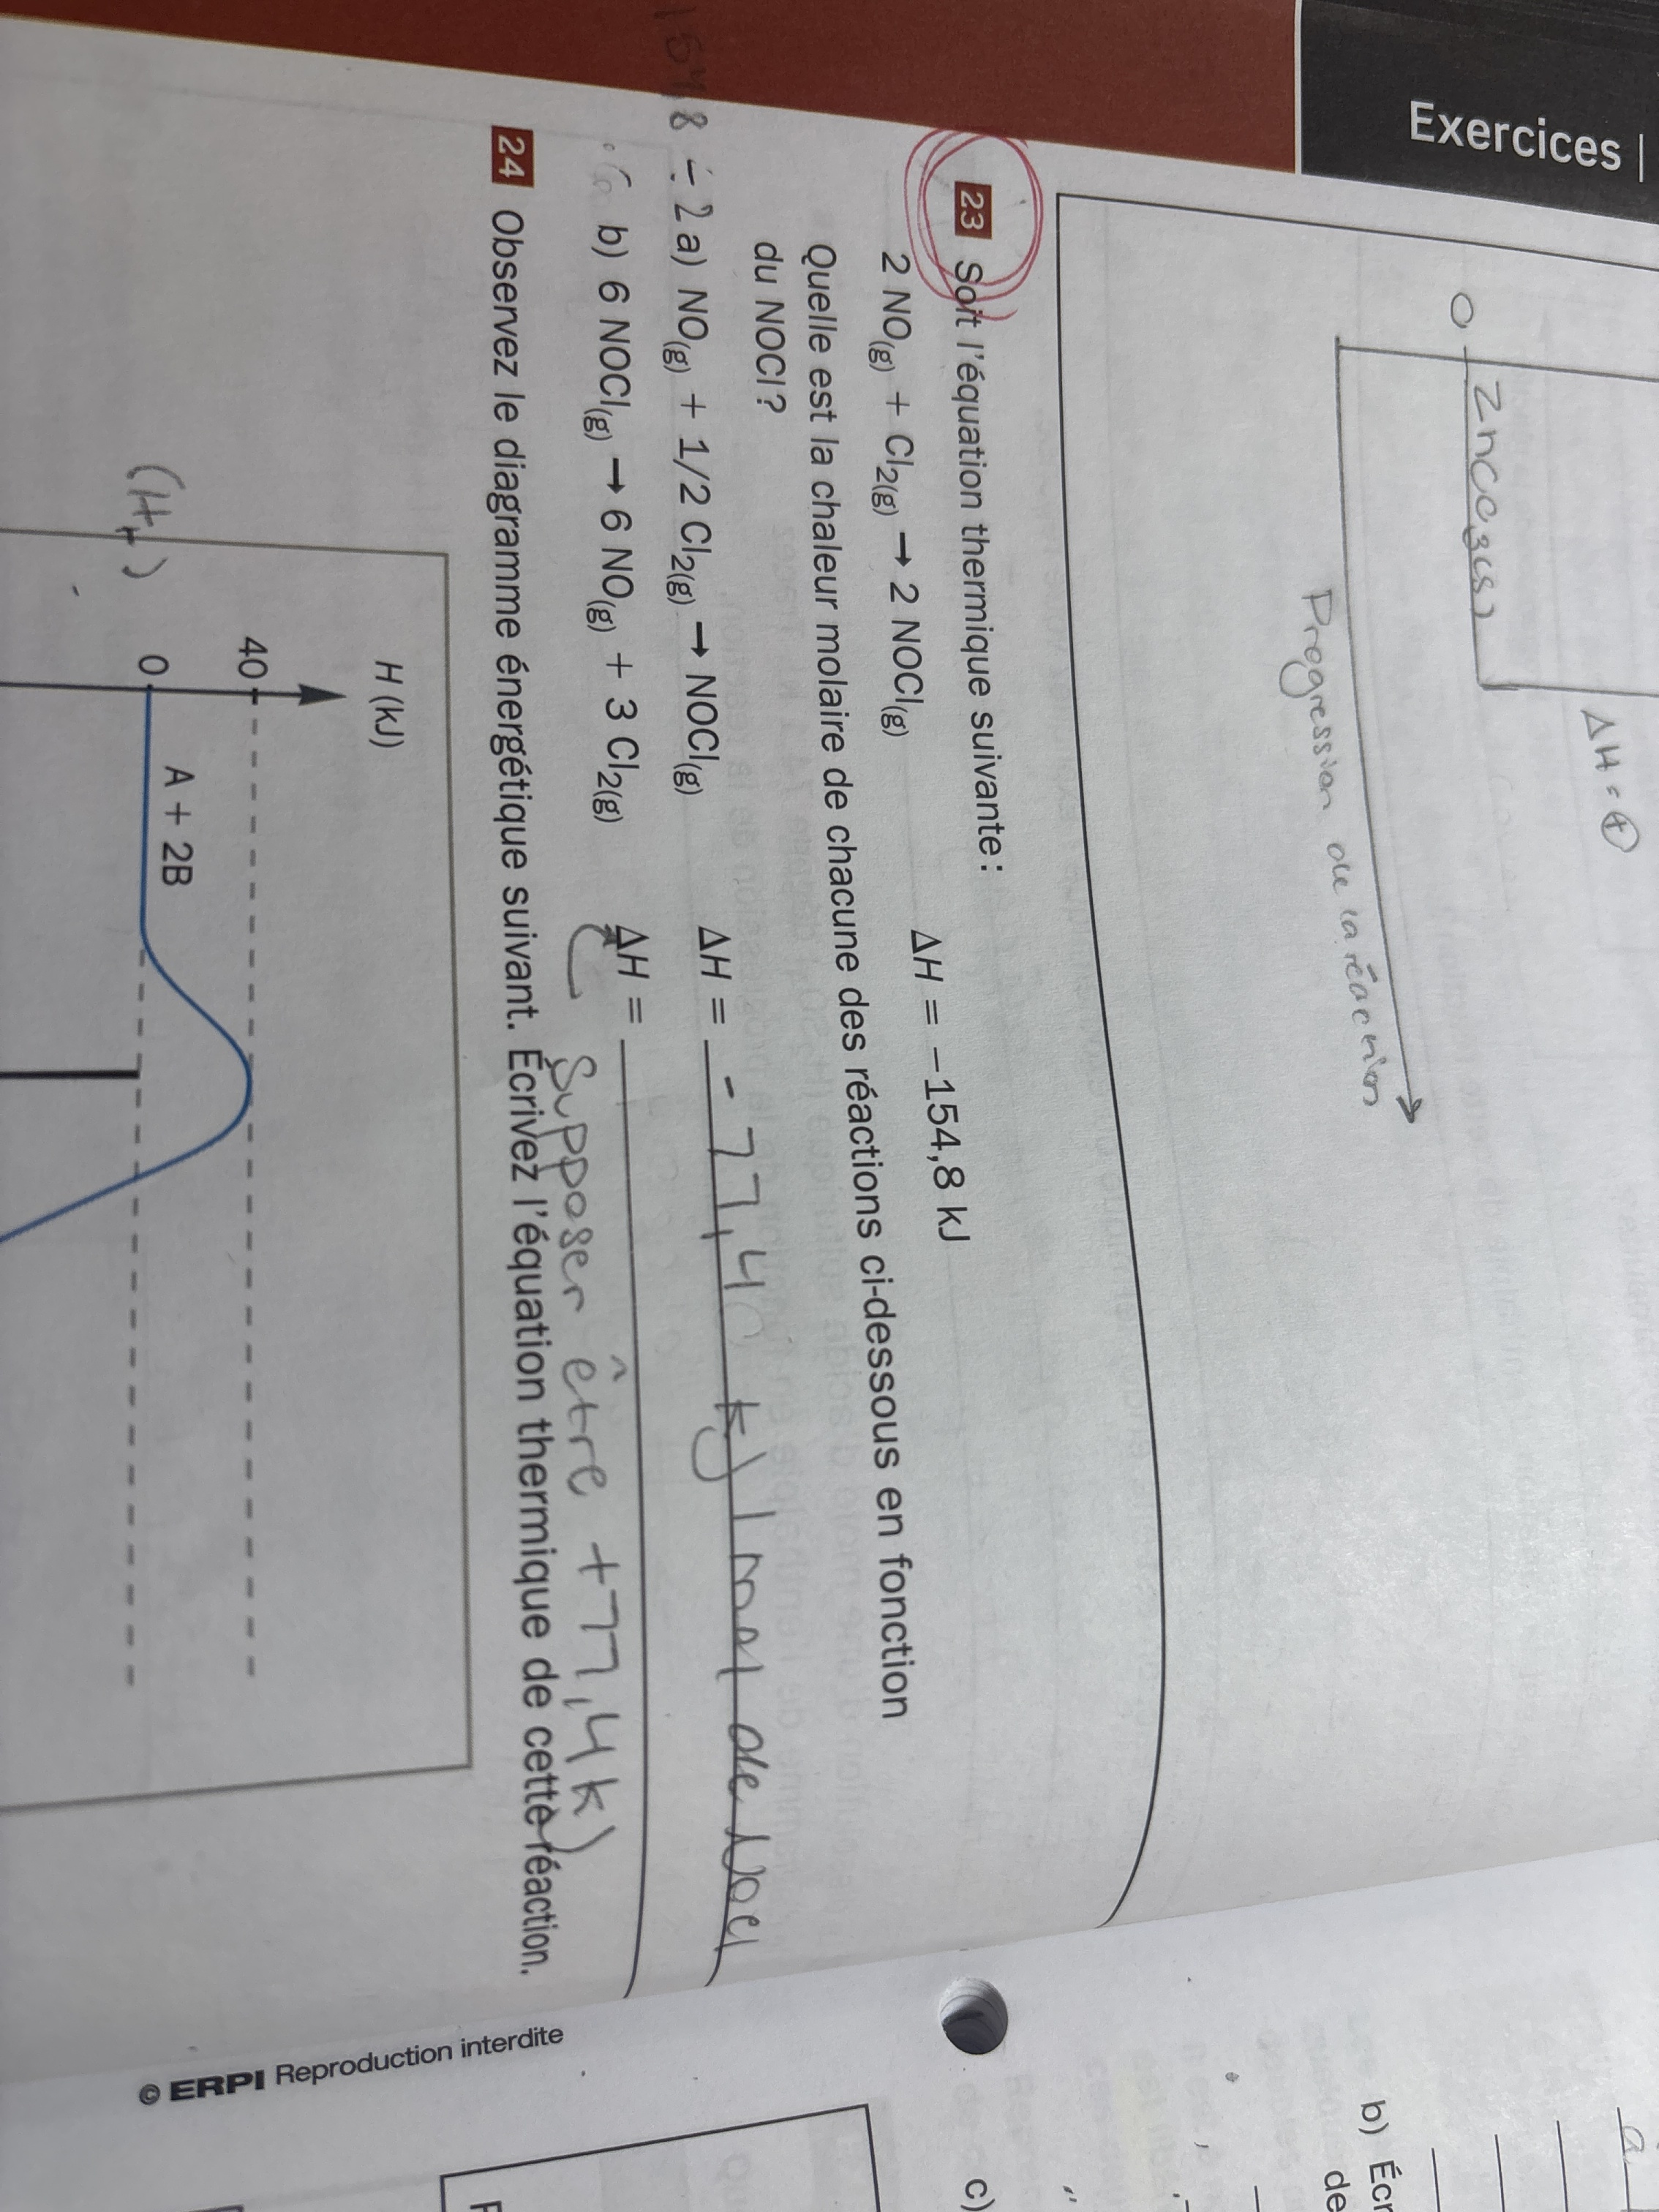 Exercices |
ΔH = +
0
Znco3(s)
Progression de la réaction
23 Soit l'équation thermique suivante :
2 NO(g) + Cl2(g) → 2 NOCl(g) ΔH = −154,8 kJ
Quelle est la chaleur molaire de chacune des réactions ci-dessous en fonction
du NOCl ?
154,8 ÷ 2
a) NO(g) + 1/2 Cl2(g) → NOCl(g) ΔH = - 77,40 kJ / mol de Nocl
b) 6 NOCl(g) → 6 NO(g) + 3 Cl2(g) ΔH =
Supposer être +77,4 kJ
24 Observez le diagramme énergétique suivant. Écrivez l'équation thermique de cette réaction.
H (kJ)
40
0
(Hr)
A + 2B
© ERPI Reproduction interdite
a
b) Écr
de
c)